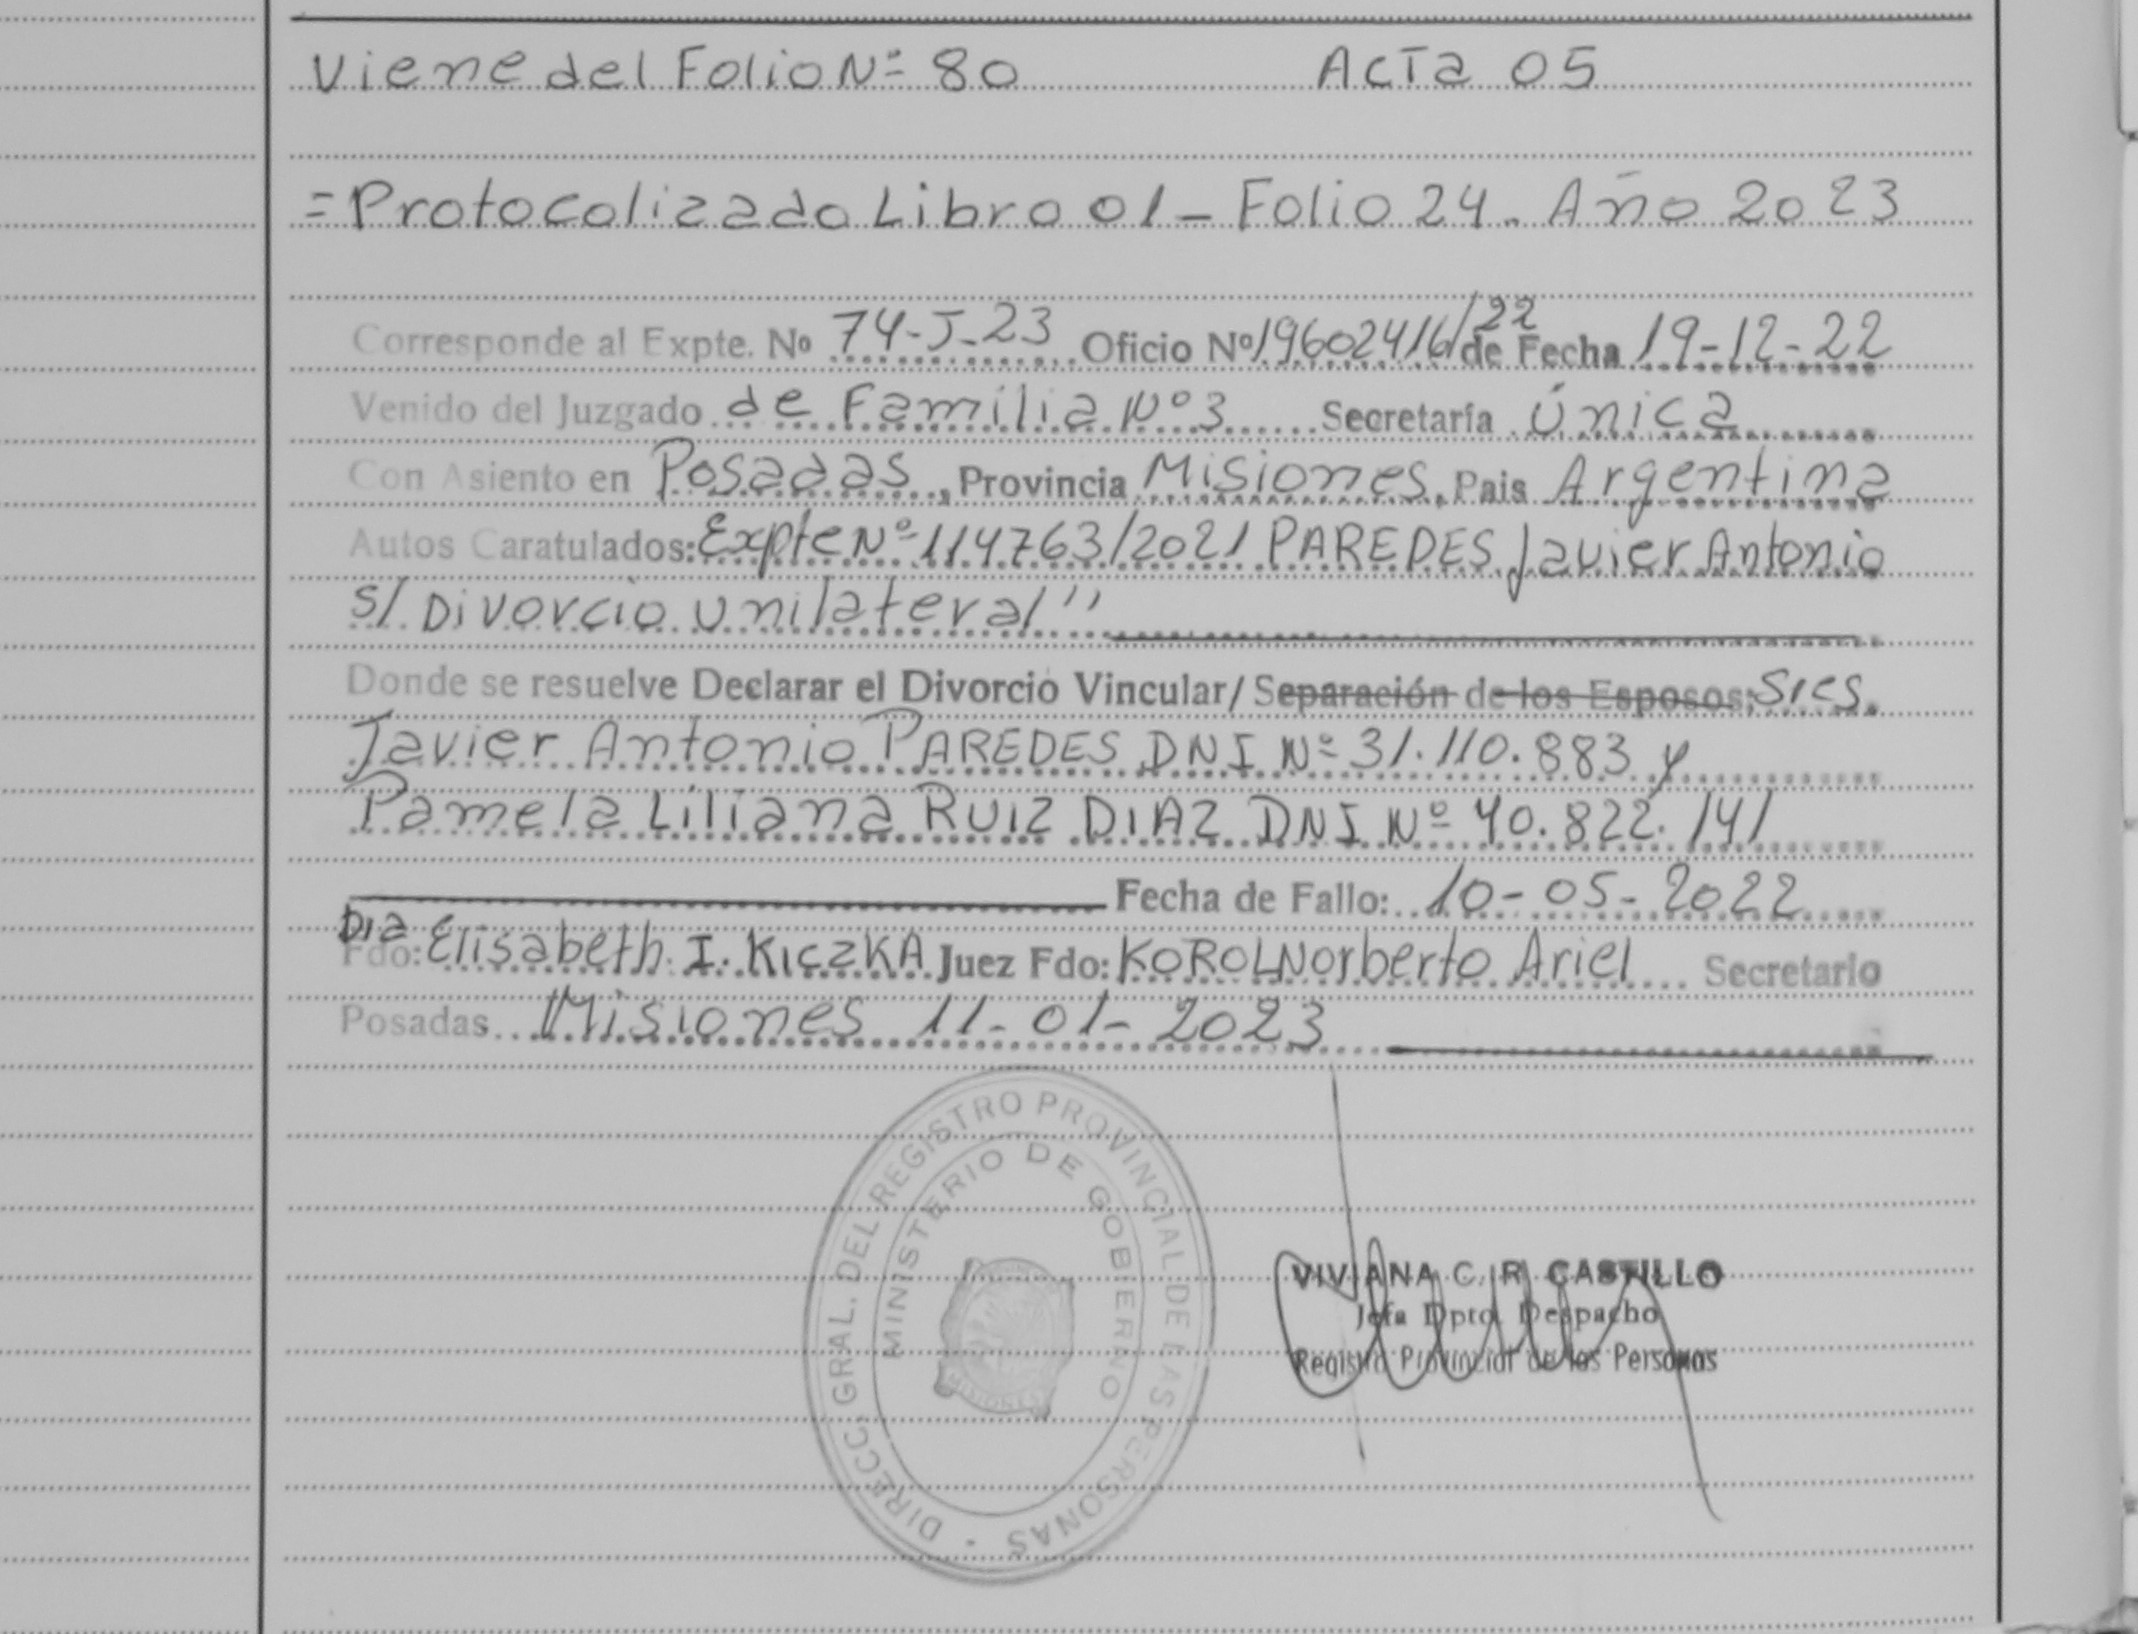 Viene del Folio Nº 80 ACTA 05
= Protocolizado Libro 01 - Folio 24. Año 2023
Corresponde al Expte. No 74-J-23 Oficio Nº 19602416/22 de Fecha 19-12-22
Venido del Juzgado de Familia Nº 3 Secretaría Única
Con Asiento en Posadas, Provincia Misiones, Pais Argentina
Autos Caratulados: Expte Nº 114763/2021 PAREDES Javier Antonio
s/ Divorcio Unilateral"
Donde se resuelve Declarar el Divorcio Vincular/ Separación de los Esposos; Sres.
Javier Antonio PAREDES DNI Nº 31.110.883 y
Pamela Liliana RUIZ DIAZ DNI Nº 40.822.141
Fecha de Fallo: 10-05-2022
Fdo: Dra Elisabeth I. KICZKA Juez Fdo: KOROL Norberto Ariel Secretario
Posadas Misiones 11-01-2023
DIRECC. GRAL. DEL REGISTRO PROVINCIAL DE LAS PERSONAS
MINISTERIO DE GOBIERNO
MISIONES
VIVIANA C. R. CASTILLO
Jefa Dpto. Despacho
Registro Provincial de las Personas